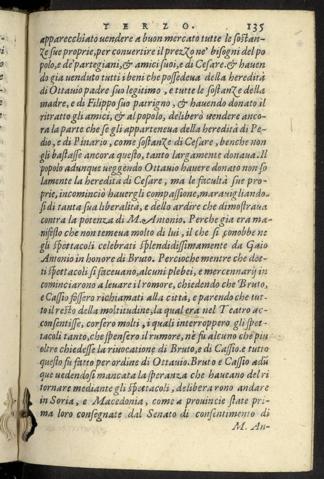 TERZO. 135
apparecchiato uendere a buon mercato tutte le sostan-
ze sue proprie, per conuertire il prezzo ne' bisogni del po
polo, e de' partegiani, & amici suoi, e di Cesare. & hauen
do gia venduto tutti i beni che possedeua della heredità
di Ottauio padre suo legitimo, e tutte le sostanze della
madre, e di Filippo suo patrigno, & hauendo donato il
ritratto gli amici, & al popolo, deliberò vendere anco-
ra la parte che se gli apparteneua della heredità di Pe-
dio, e di Pinario, come sostanze di Cesare, benche non
gli bastasse ancora questo, tanto largamente donaua. Il
popolo adunque veggendo Ottauio hauere donato non so
lamente la heredità di Cesare, ma le facultà sue pro-
prie, incominciò hauergli compassione, marauigliando-
si di tanta sua liberalità, e dello ardire che dimostraua
contra la potenza di M. Antonio. Perche gia era ma-
nifesto che non temeua molto di lui, il che si conobbe ne
gli spettacoli celebrati splendidissimamente da Gaio
Antonio in honore di Bruto. Percioche mentre che det-
ti spettacoli si faceuano, alcuni plebei, e mercennarij in
cominciarono a leuare il romore, chiedendo che Bruto,
e Cassio fossero richiamati alla città, e parendo che tut-
to il resto della moltitudine, la qual era nel Teatro ac-
consentisse, corsero molti, i quali interroppero gli spet-
tacoli tanto, che spensero il rumore, nè fu alcuno che piu
oltre chiedesse la riuocatione di Bruto, e di Cassio. e tutto
questo fu fatto per ordine di Ottauio. Bruto e Cassio adū
que uedendosi mancata la speranza che haueano del ri
tornare mediante gli spettacoli, deliberarono andare
in Soria, e Macedonia, come a prouincie state pri-
ma loro consegnate dal Senato di consentimento di
M. An-